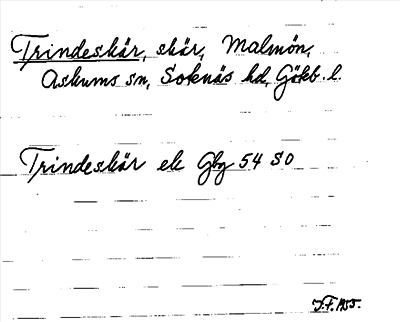 Trindeskär, skär, Malmön,
Askums sn, Soknäs hd, Gökb. l.
Trindeskär ek Gbg 54 SO
J.F. 1955.